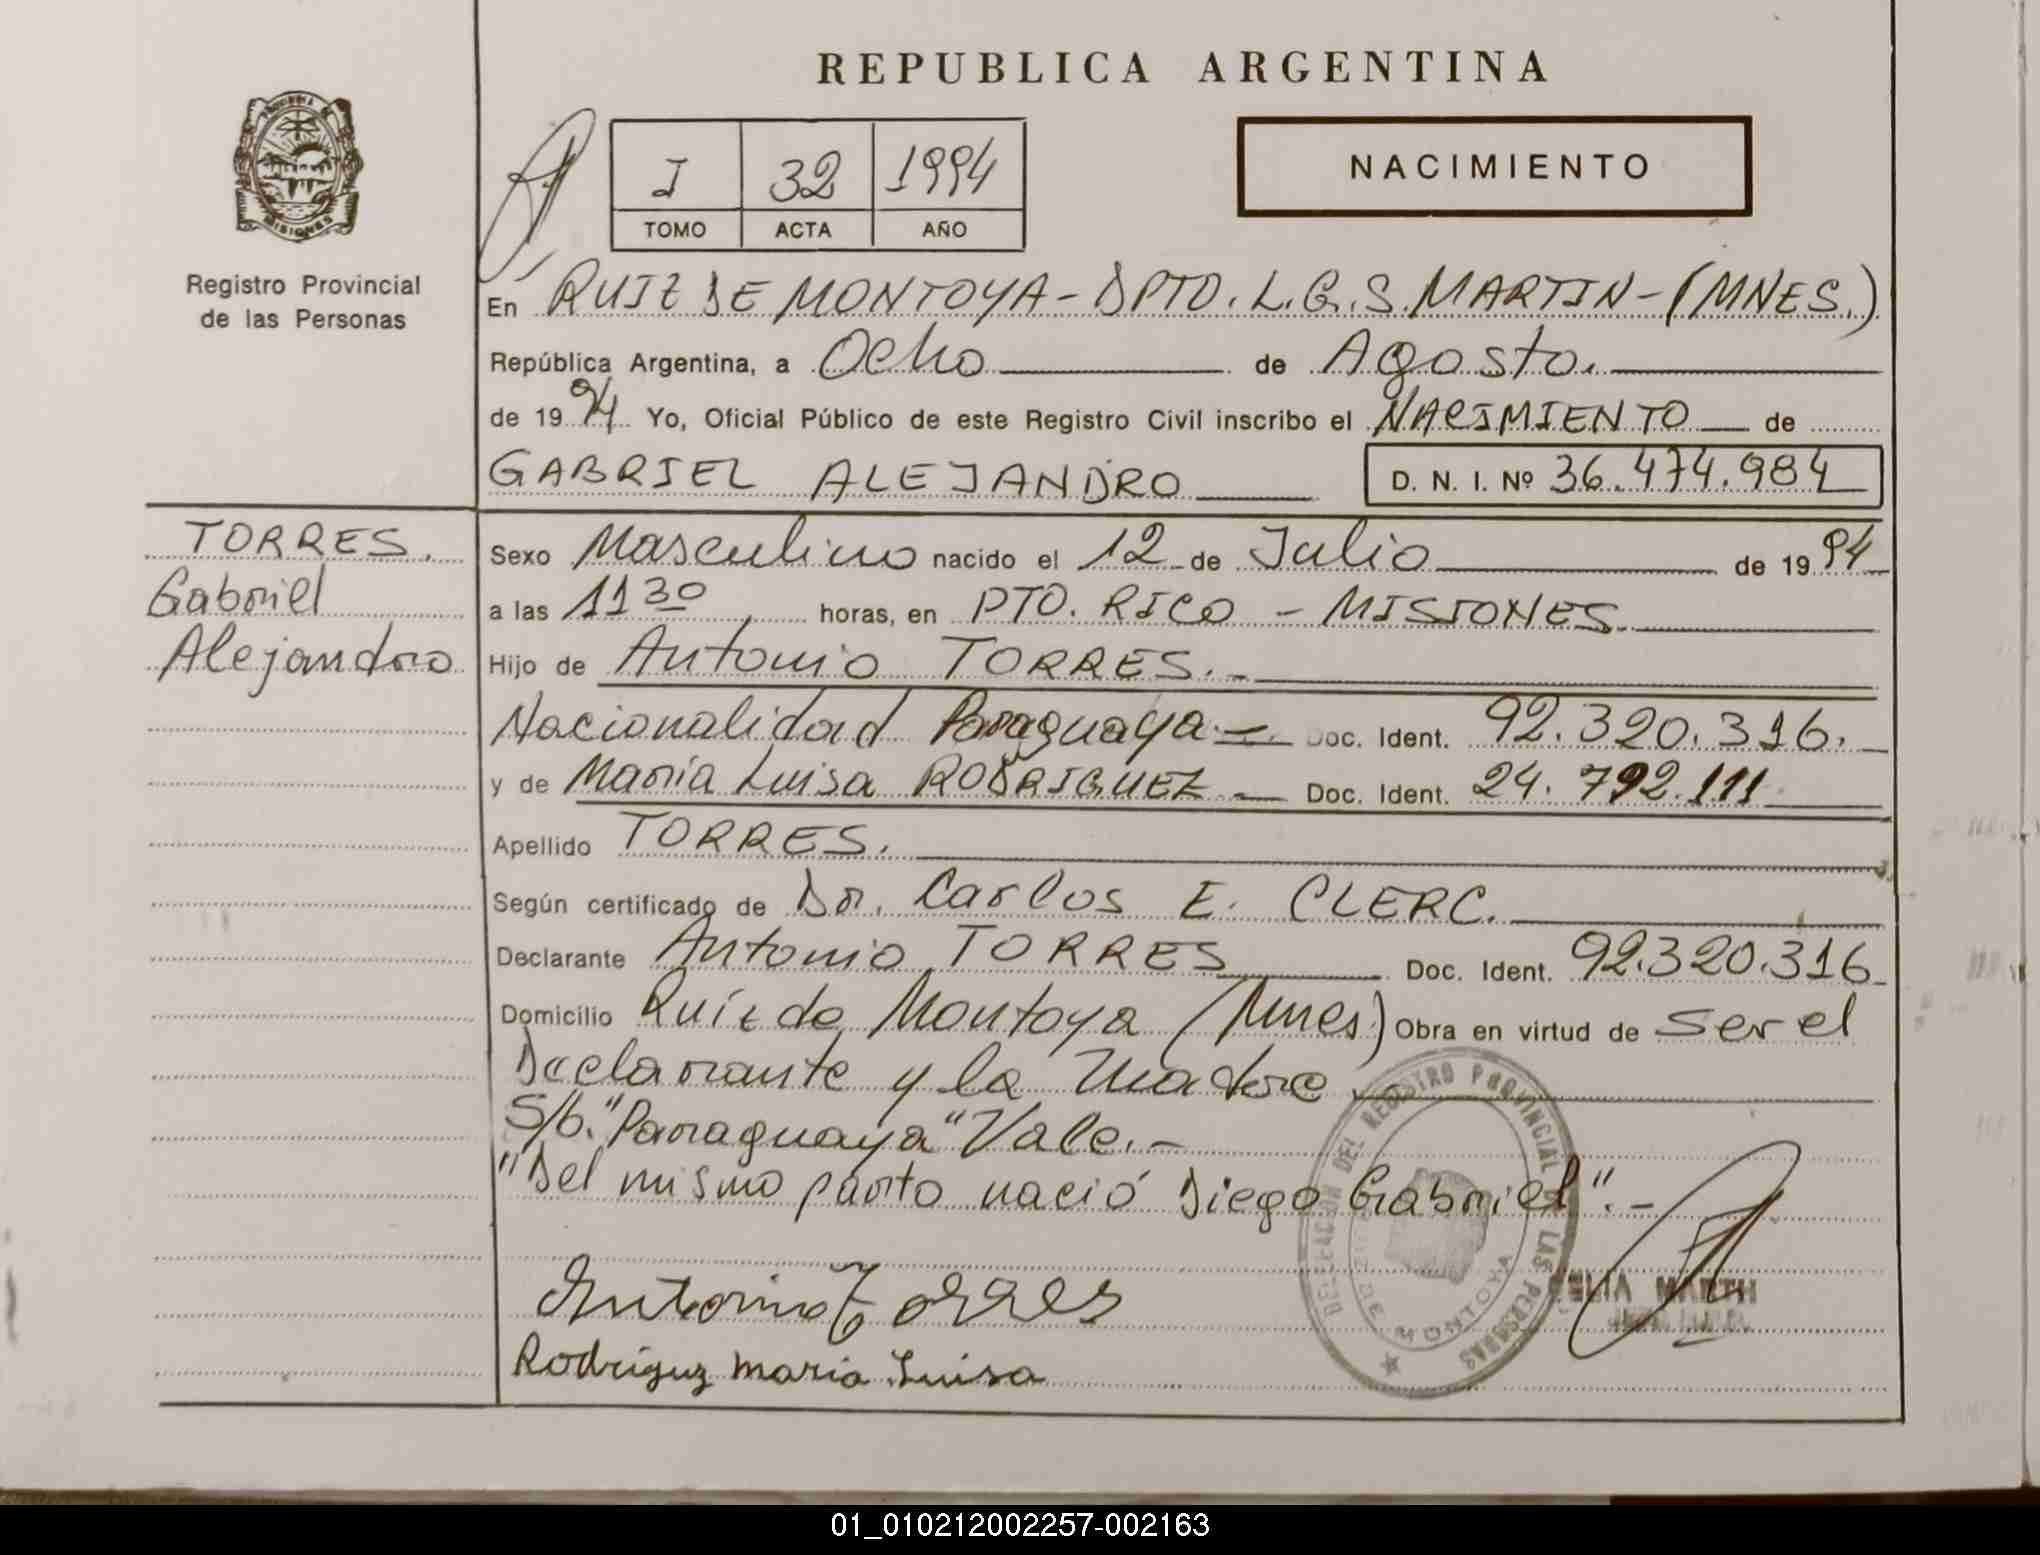 REPUBLICA ARGENTINA
PROVINCIA DE
MISIONES
Registro Provincial
de las Personas
I 32 1994
TOMO ACTA AÑO
NACIMIENTO
En RUIZ DE MONTOYA - DPTO. L.G.S. MARTIN - (MNES.)
República Argentina, a Ocho de Agosto.
de 1994 Yo, Oficial Público de este Registro Civil inscribo el NACIMIENTO de
GABRIEL ALEJANDRO D. N. I. Nº 36.474.984
TORRES.
Gabriel
Alejandro
Sexo Masculino nacido el 12 de Julio de 1994
a las 11 30 horas, en PTO. RICO - MISIONES.
Hijo de Antonio TORRES. -
Nacionalidad Paraguaya - Doc. Ident. 92.320.316.
y de María Luisa RODRIGUEZ Doc. Ident. 24.792.111
Apellido TORRES.
Según certificado de Dr. Carlos E. CLERC.
Declarante Antonio TORRES Doc. Ident. 92.320.316
Domicilio Ruíz de Montoya (Mnes) Obra en virtud de ser el
Declarante y la Madre.
S/b. "Paraguaya" Vale. -
"Del mismo parto nació Diego Gabriel". -
Antonio Torres
Rodriguz maria Luisa
DELEGACION DEL REGISTRO PROVINCIAL DE LAS PERSONAS
MONTOYA
CELIA MARTH
01_010212002257-002163